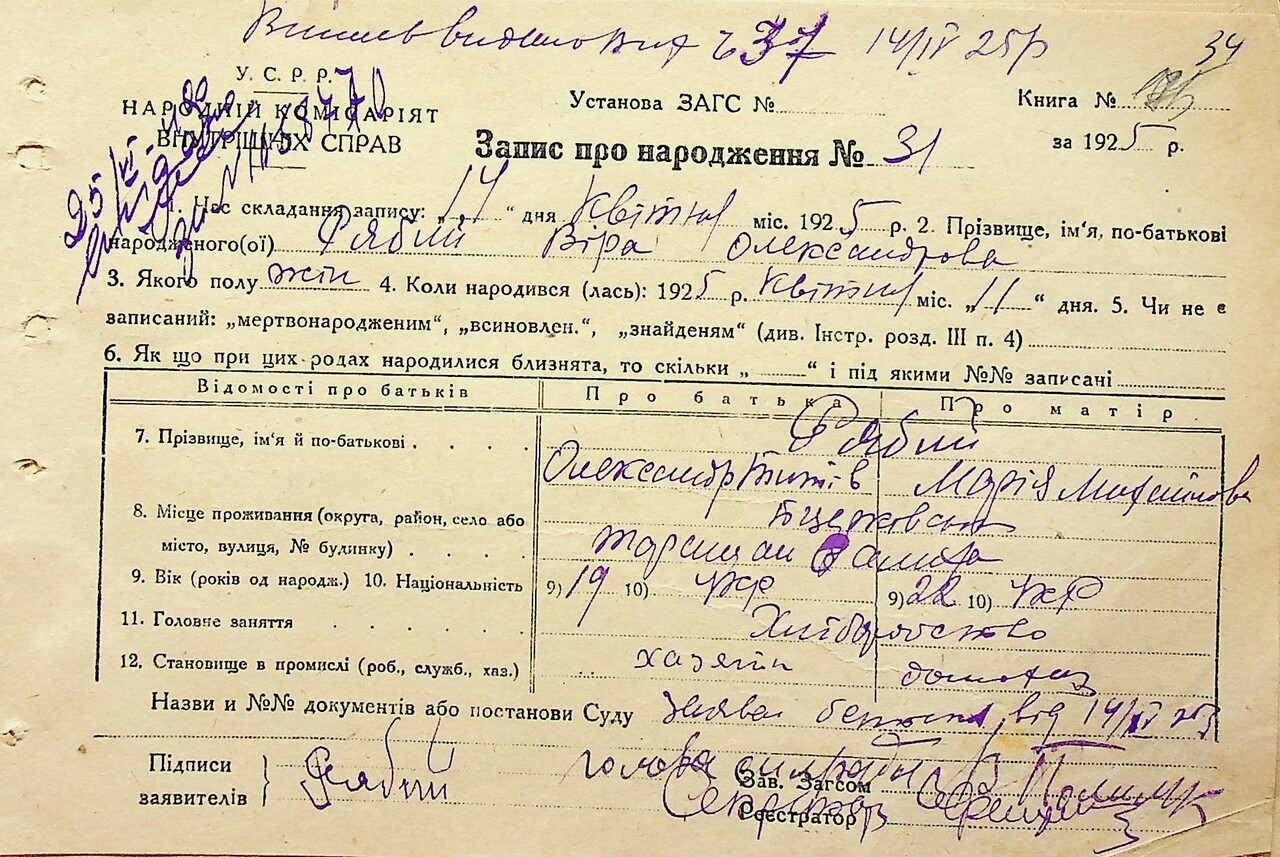 14/IV 25р
34
У. С. Р. Р.
НАРОДНІЙ КОМІСАРІЯТ
ВНУТРІШНІХ СПРАВ
Установа ЗАГС №
Книга №
за 1925 р.
Запис про народження № 31
1. Час складання запису: „14“ дня Квітня міс. 1925 р. 2. Прізвище, ім'я, по-батькові
народженого(ої) Рябий Віра Олександрова
3. Якого полу жін 4. Коли народився (лась): 1925 р. Квітня міс. „11“ дня. 5. Чи не є
записаний: „мертвонародженим“, „всиновлен.“, „знайденям“ (див. Інстр. розд. III п. 4)
6. Як що при цих родах народилися близнята, то скільки „ “ і під якими №№ записані
Відомості про батьків Про батька Про матір
7. Прізвище, ім'я й по-батькові Рябий
Олександр Титів Марія Михайлова
8. Місце проживання (округа, район, село або
місто, вулиця, № будинку)
9. Вік (років од народж.) 10. Національність 9) 19 10) Укр 9) 22 10) Укр
11. Головне заняття Хліборобство
12. Становище в промислі (роб., служб., хаз.) хазяїн
Назви и №№ документів або постанови Суду Заява батька від 14/IV 25
Підписи
заявителів
Рябий
голова сільради
Зав. Загсом
Секретар
Реєстратор